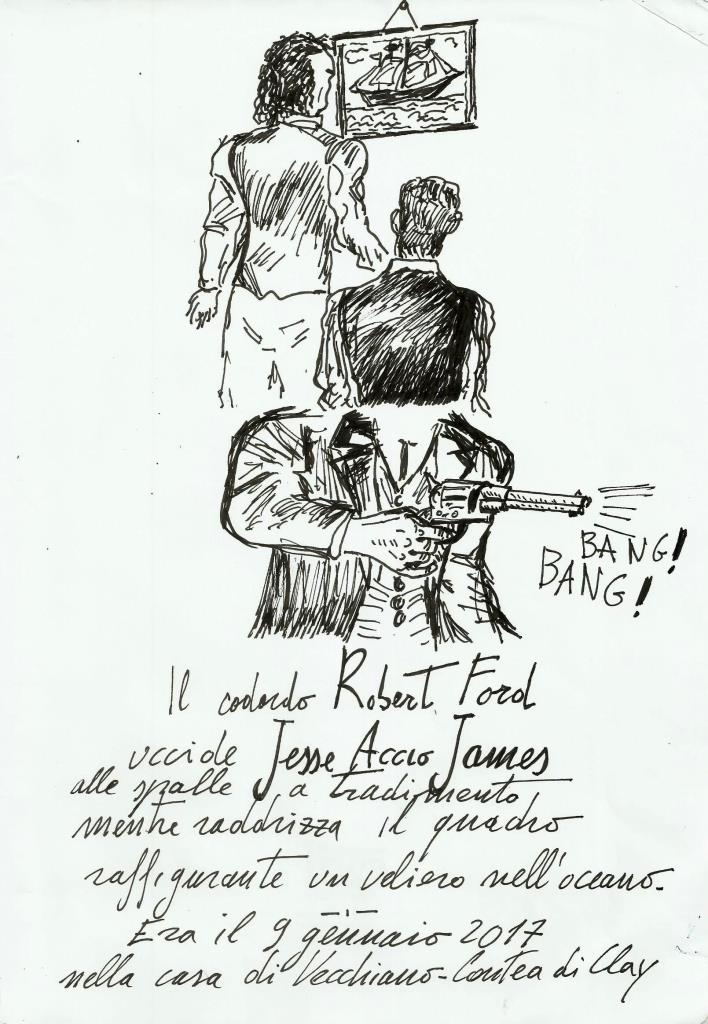 BANG!
BANG!
Il codardo Robert Ford
uccide Jesse Accio James
alle spalle a tradimento
mentre raddrizza il quadro
raffigurante un veliero nell'oceano.
Era il 9 gennaio 2017
nella casa di Vecchiano-Contea di Clay